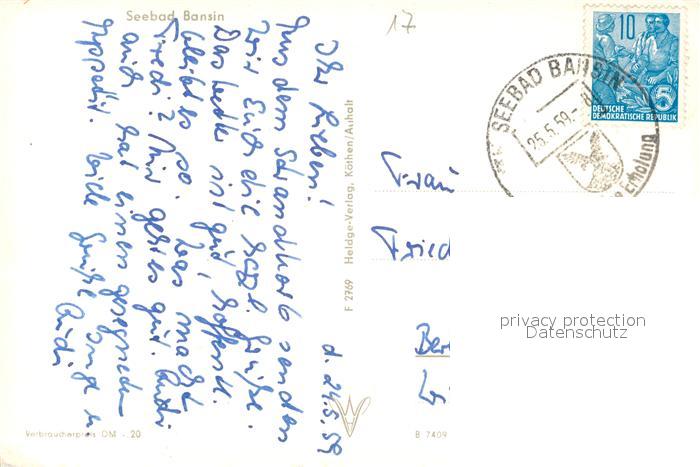 Seebad Bansin
17
d. 24.5.59
Ihr Lieben!
Aus dem Strandkorb senden
wir Euch die herzl. Grüße.
Das Wetter ist gut, hoffentl.
bleibt es so. Was macht
Friedi? Mir geht es gut. Rudi
auch hat einen gesegneten
Appetit. Viele Grüße Inge u
Rudi
Verbraucherpreis DM -.20
F 2769 Heldge-Verlag, Köthen/Anhalt
B 7409
10
5
DEUTSCHE
DEMOKRATISCHE REPUBLIK
SEEBAD BANSIN
25.5.59-
Erholung
Frau
Fried
Ber
privacy protection
Datenschutz